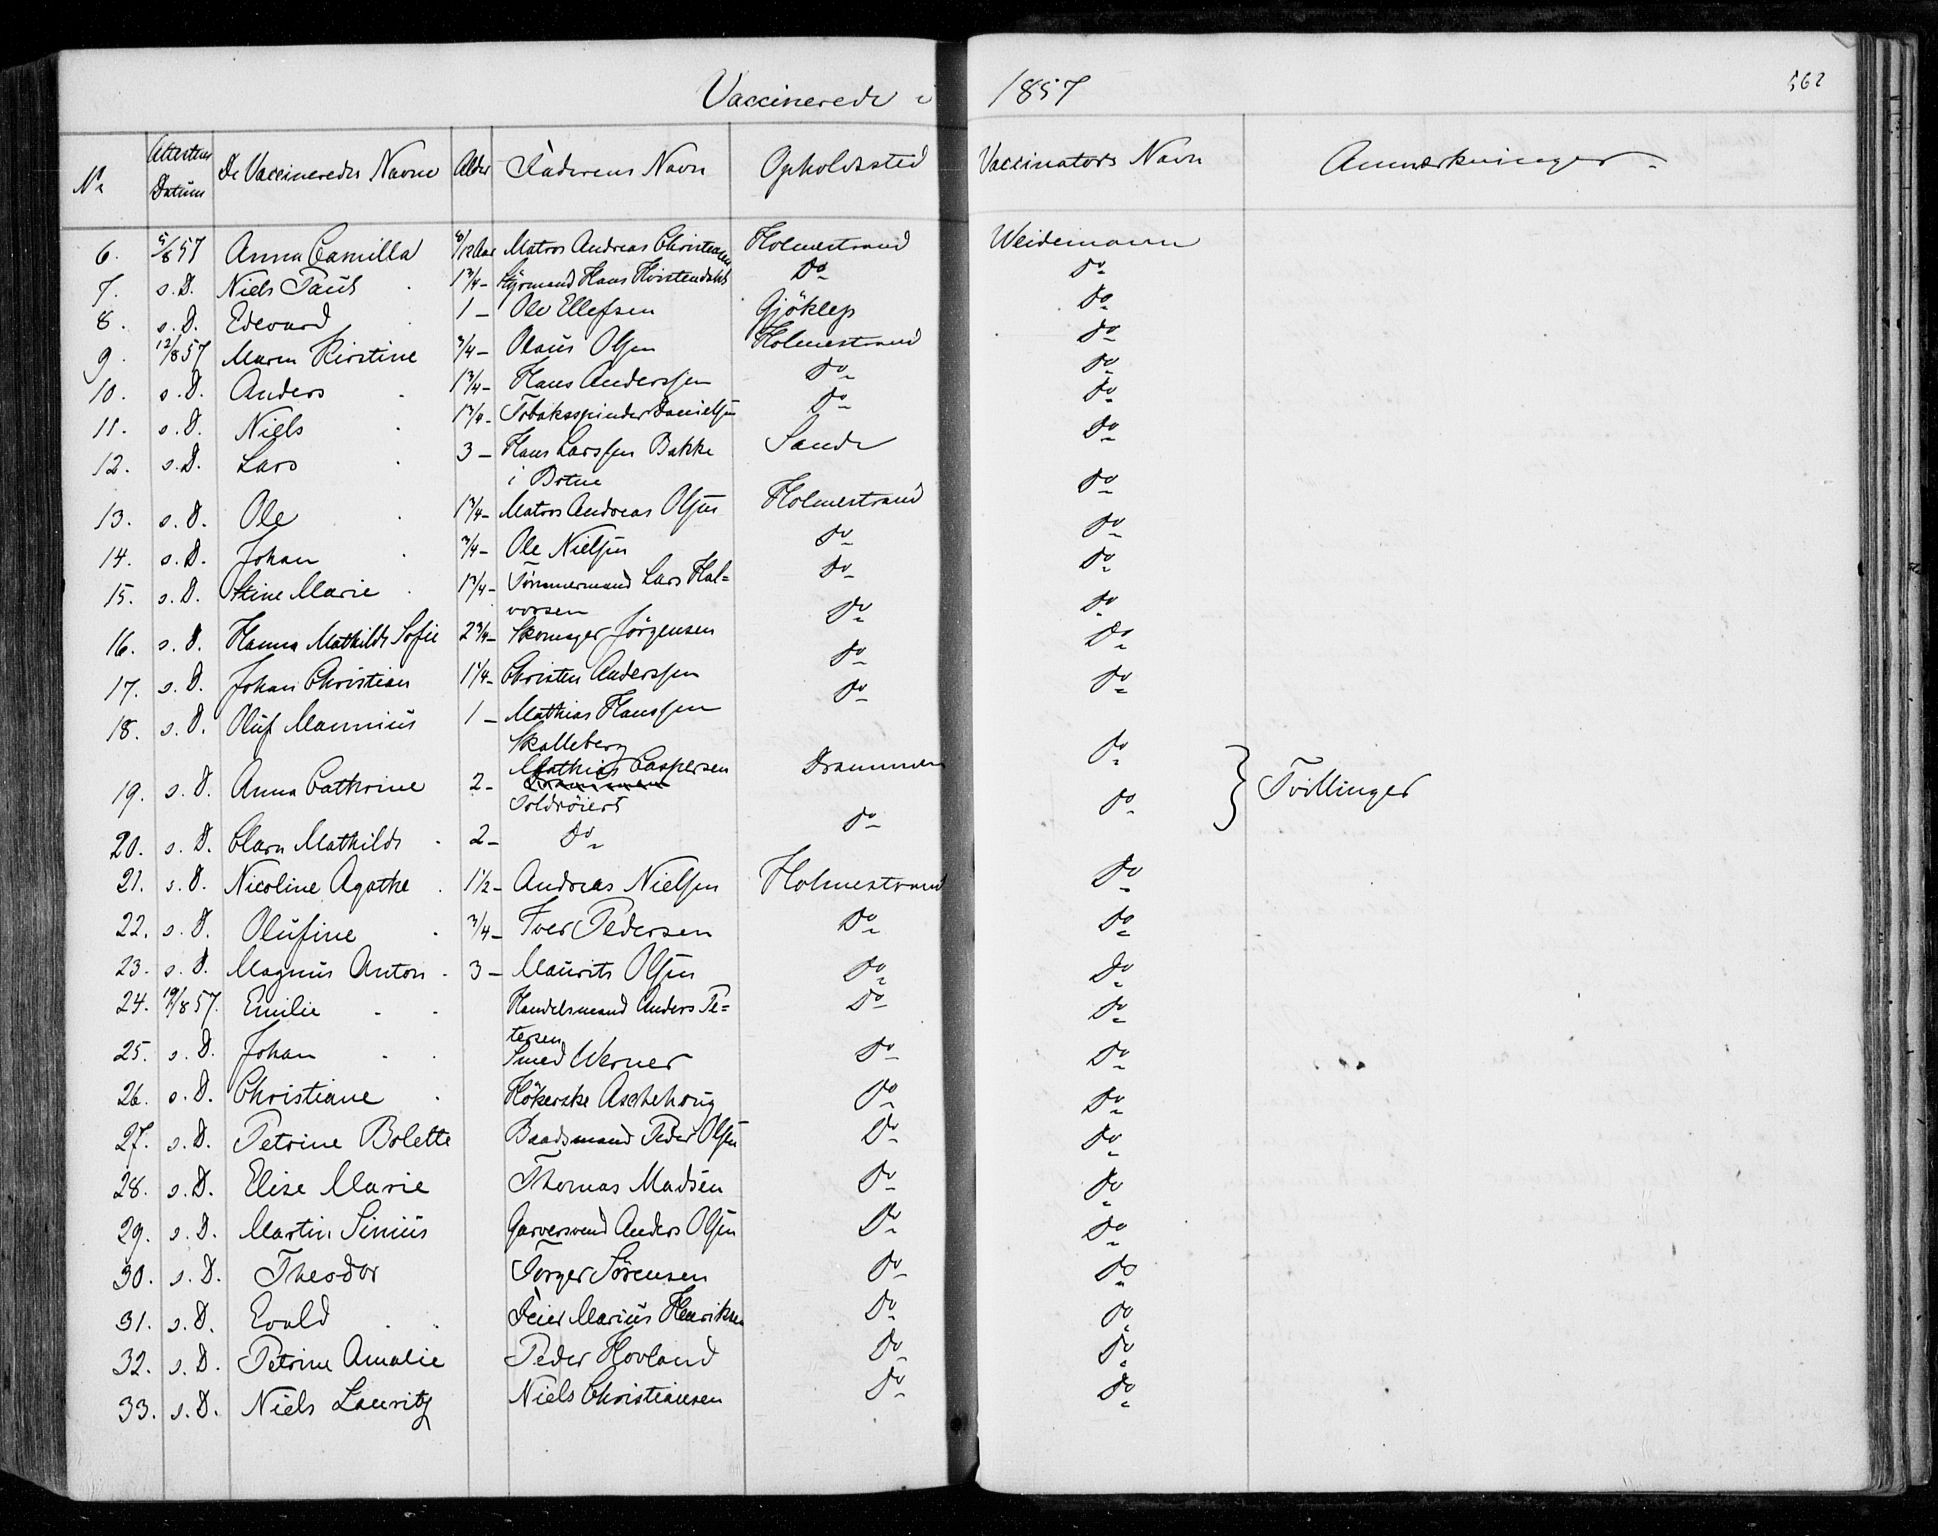 Vaccinerede i 1857 562
No Attestens Datum De Vaccineredes Navne Alder Faderens Navn Opholdssted Vaccinators Navn Anmærkninger
6. 5/8 57 Anna Camilla 8/12 Aar Matros Andreas Christensen Holmestrand Weidemann
7. s. D. Niels Paul 1 3/4 - Styrmand Hans Do Do
8. s. D. Edevard 1 - Ole Ellefsen Gjöklep Do
9. 12/8 57 Maren Kirstine 3/4 - Olaus Olsen Holmestrand Do
10. s. D. Anders 1 3/4 - Hans Anderssen Do Do
11. s. D. Niels 1 3/4 - Tobaksspinder Danielsen Do Do
12. s. D. Lars 3 - Hans Larssen Bakke Sande Do
i Botne
13. s. D. Ole 1 3/4 - Matros Andreas Olsen Holmestrand Do
14. s. D. Johan 3/4 - Ole Nielsen Do Do
15. s. D. Stine Marie 1 3/4 - Tömmermand Lars Hal=
vorsen Do Do
16. s. D. Hanna Mathilde Sofie 2 3/4 - Skomager Jörgensen Do Do
17. s. D. Johan Christian 1 1/4 - Christen Anderssen Do Do
18. s. D. Oluf Mannius 1 - Mathias Hanssen Do Do
Skalleberg
19. s. D. Anna Cathrine 2 - Mathias Caspersen Drammen Do } Tvillinger
Drammen
Toldröiert
20. s. D. Clara Mathilde 2 - Do Do Do
21. s. D. Nicoline Agathe 1 1/2 - Andreas Nielsen Holmestrand Do
22. s. D. Olufine 3/4 - Iver Pedersen Do Do
23. s. D. Magnus Anton 3 - Maurits Olsen Do Do
24. 19/8 57. Emilie Handelsmand Anders Pe= Do Do
tersen
25. s. D. Johan Smed Werner Do Do
26. s. D. Christiane Hökerske Aschehoug Do Do
27. s. D. Petrine Bolette Baadsmand Peder Olsen Do Do
28. s. D. Elise Marie Thomas Madsen Do Do
29. s. D. Martin Sinius Garversvend Anders Olsen Do Do
30. s. D. Theodor Torger Sörensen Do Do
31. s. D. Evald Feier Marius Henriksen Do Do
32. s. D. Petrine Amalie Peder Hovland Do Do
33. s. D. Niels Lauritz Niels Christiansen Do Do